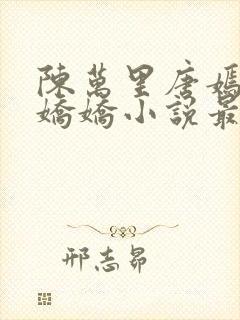 陳萬里唐嫣
嬌嬌小說最
邢志昴